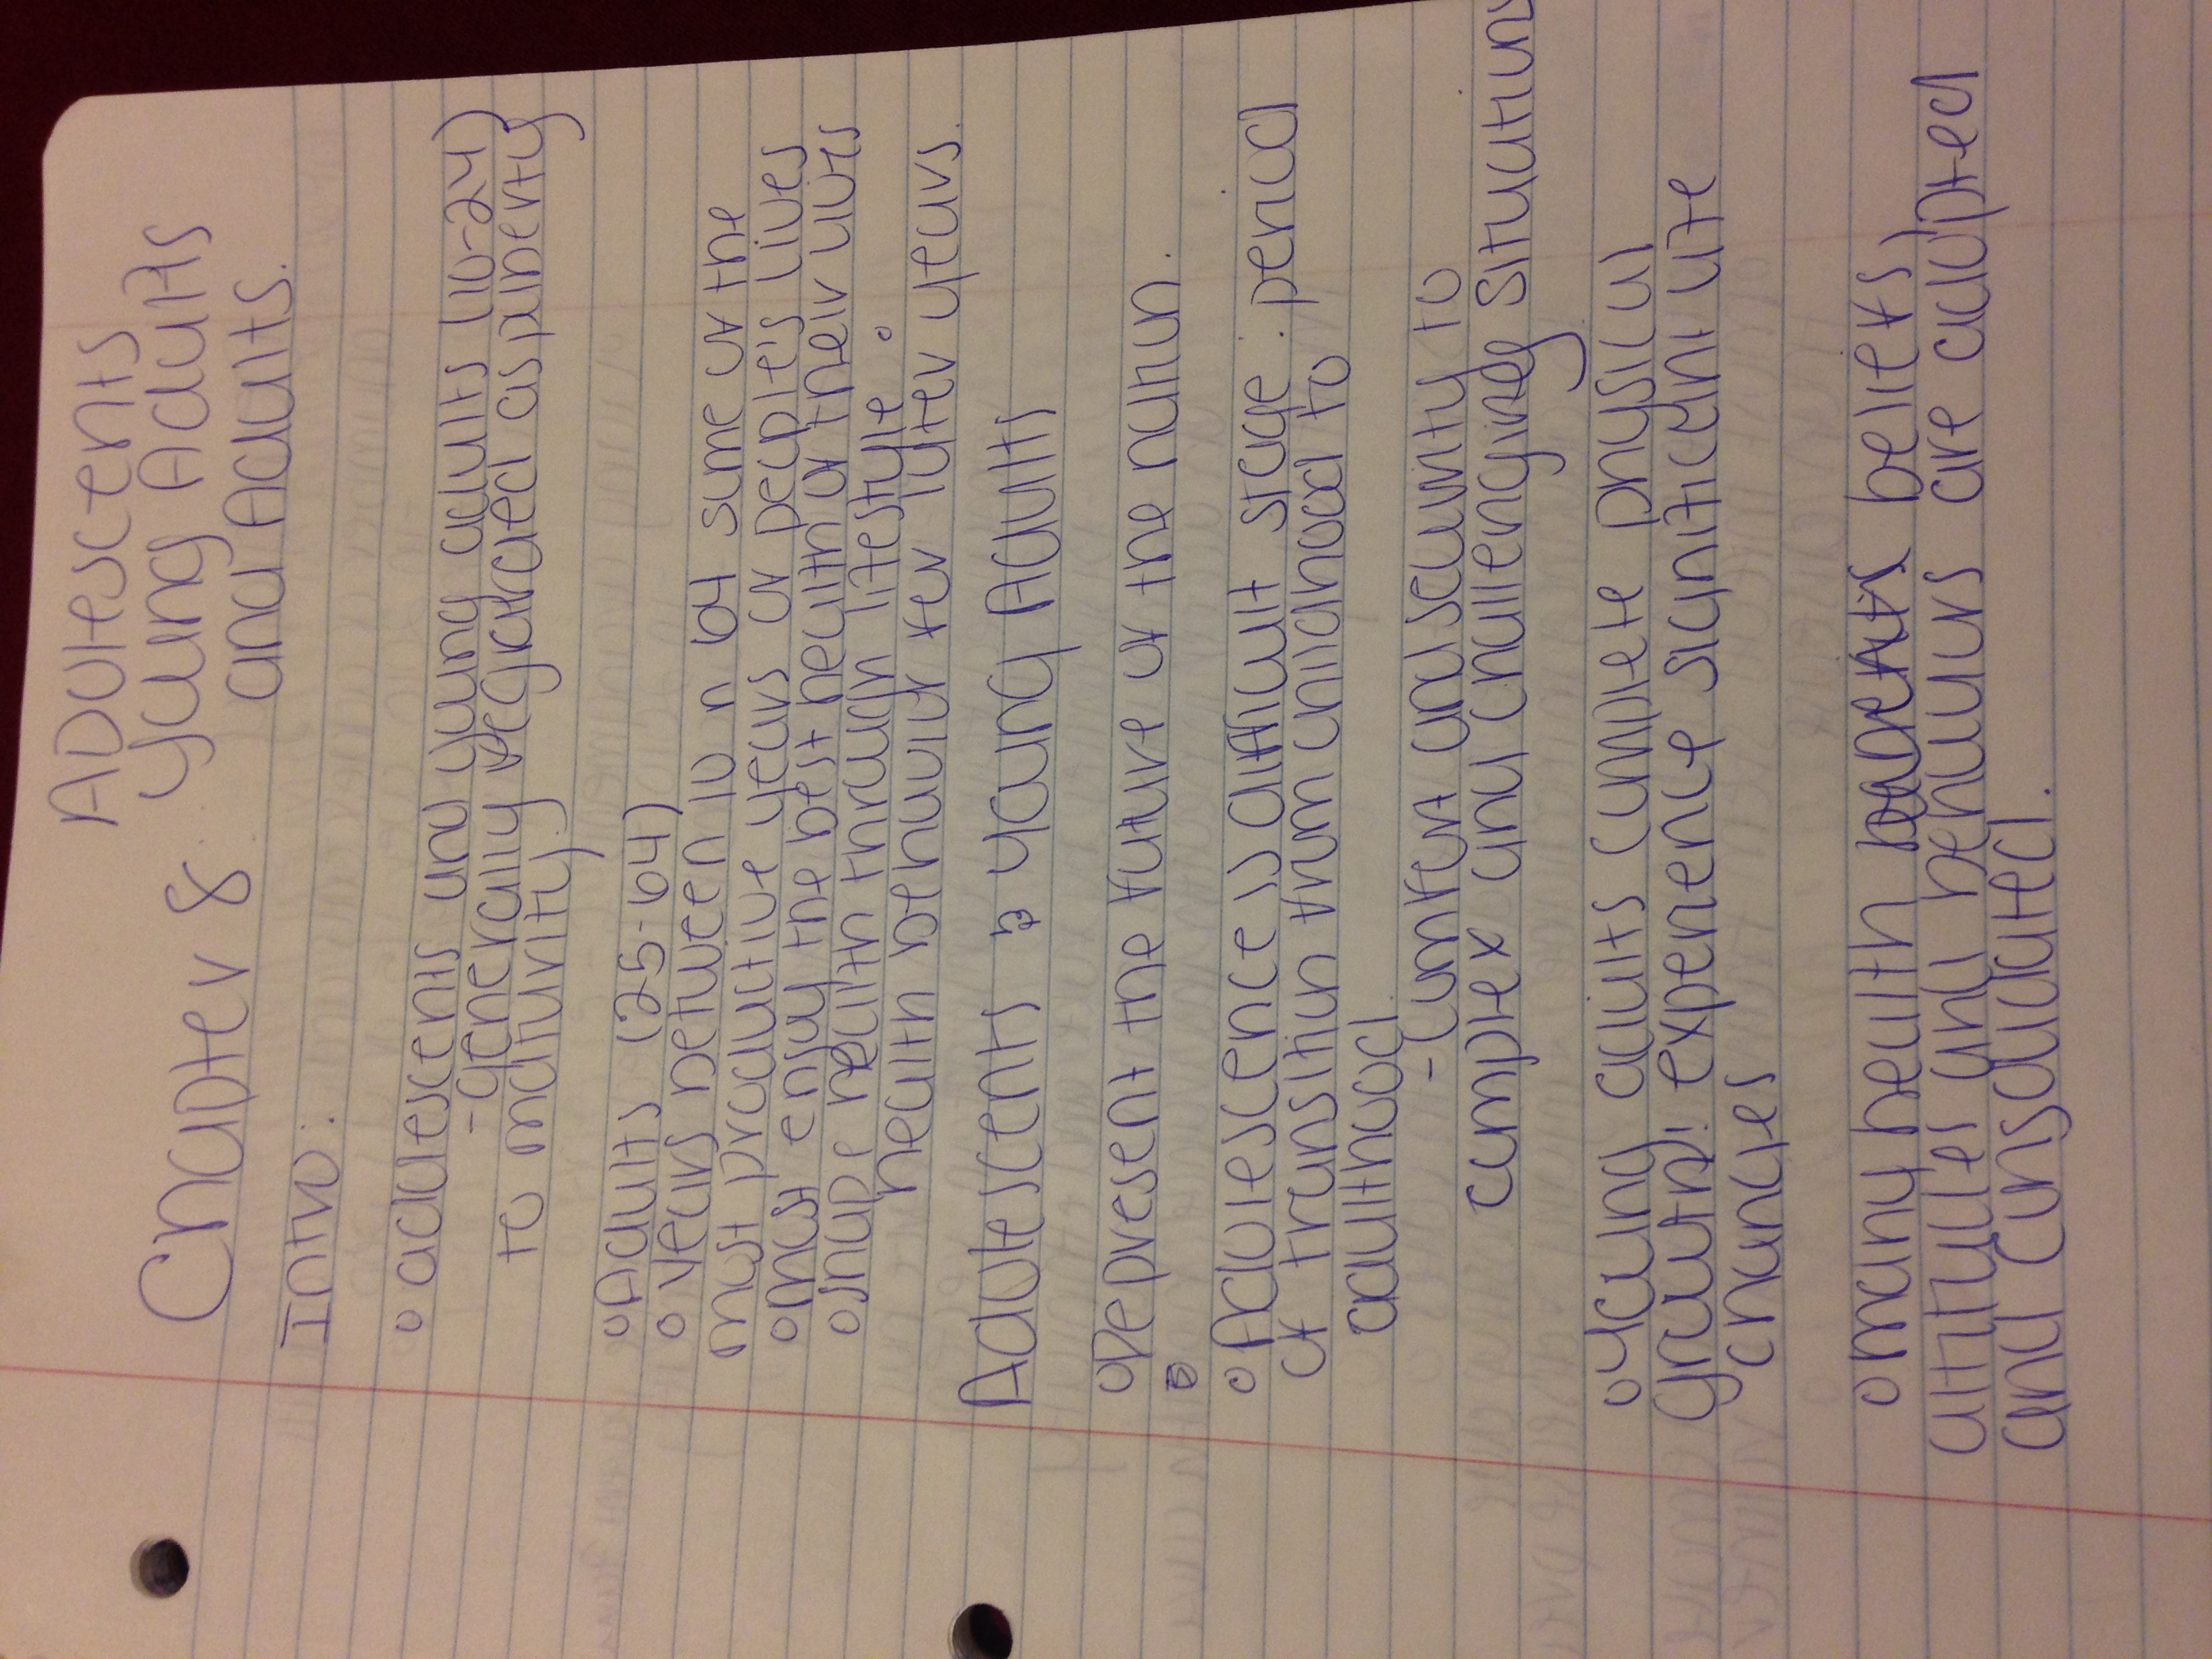 Chapter 8: Adolescents
Young Adults
and Adults.
Intro:
o adolescents and young adults (10-24)
- generally regarded as puberty
to maturity.
o Adults (25-64)
o years between 10 n 64 some of the
most productive years of people's lives
o most enjoy the best health of their lives
o shape health through lifestyle o
health behavior for later years.
Adolescents & young Adults
o Represent the future of the nation.
o Adolescence is difficult stage: period
of transition from childhood to
adulthood.
- Confront and security to
complex and challenging situations
o young adults complete physical
growth: experience significant life
changes
o many health beliefs
attitudes and behaviors are adopted
and consolidated.